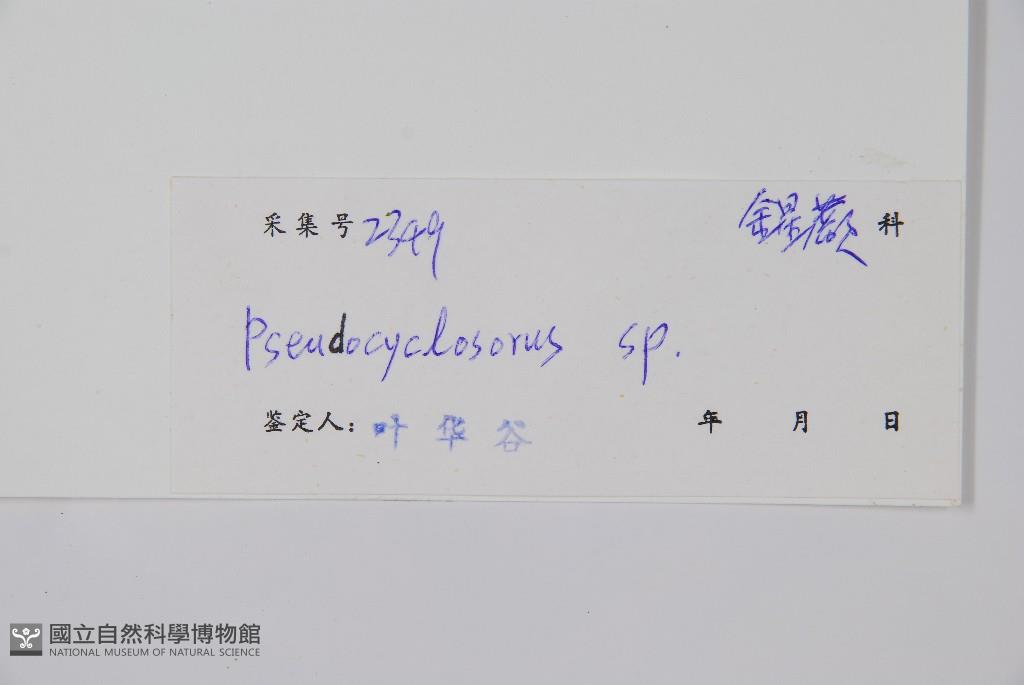 采集号 2349 金星蕨 科
Pseudocyclosorus sp.
鉴定人: 叶华谷 年 月 日
國立自然科學博物館
NATIONAL MUSEUM OF NATURAL SCIENCE